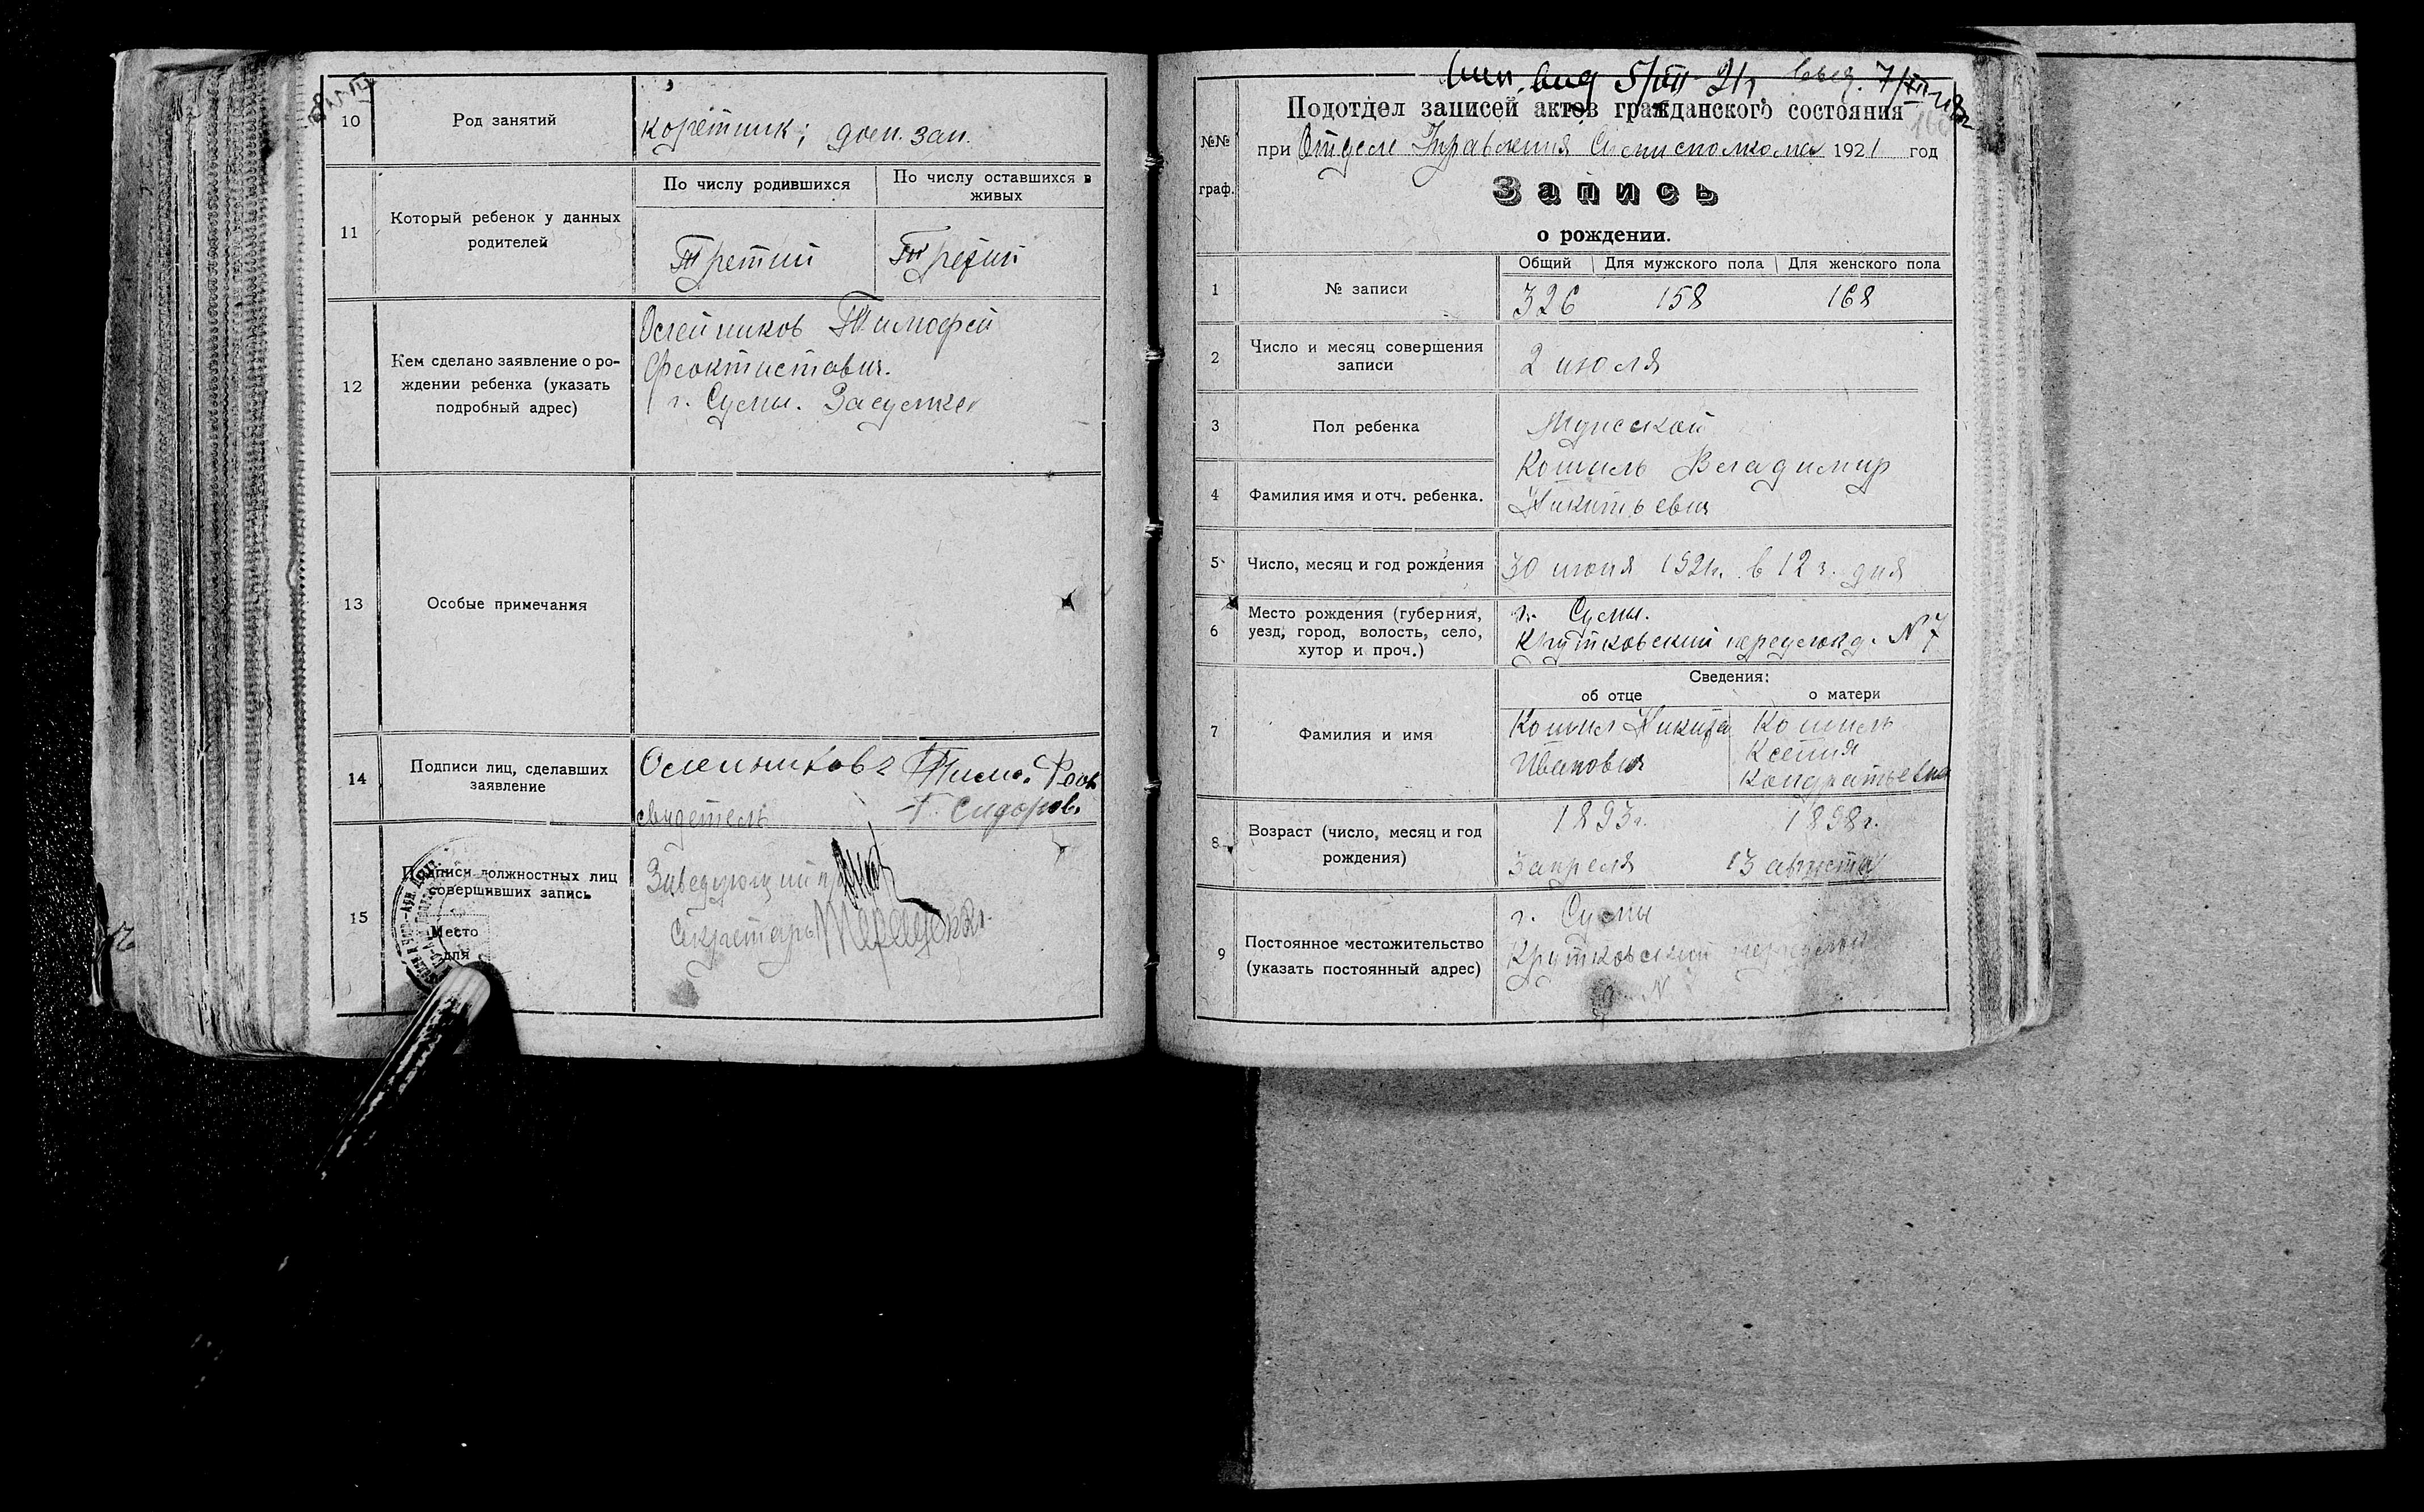 10
Род занятий
коретник; дом. зан.
11
Который ребенок у данных
родителей
По числу родившихся
По числу оставшихся в
живых
Третий
Третий
12
Кем сделано заявление о ро-
ждении ребенка (указать
подробный адрес)
Олейников Тимофей
Феоктистович.
г. Сумы. Засумка
13
Особые примечания
14
Подписи лиц, сделавших
заявление
Олейников Тимо. Феок
свидетель Т. Сидоров
15
Подписи должностных лиц
совершивших запись
Место
для
Заведующий
Секретарь
5/VII 21г. выд. 7/XII
Подотдел записей актов гражданского состояния
№№
граф.
при Отделе Управления 1921 год
Запись
о рождении.
1
№ записи
Общий
Для мужского пола
Для женского пола
326
158
168
2
Число и месяц совершения
записи
2 июля
3
Пол ребенка
Мужской
4
Фамилия имя и отч. ребенка.
Кошиль Владимир
Никитьевич
5
Число, месяц и год рождения
30 июня 1921г. в 12 ч. дня
6
Место рождения (губерния,
уезд, город, волость, село,
хутор и проч.)
г. Сумы.
Крутковский переулок д. N 7
Сведения:
об отце
о матери
7
Фамилия и имя
Кошил Никита
Иванович
Кошиль
Ксения
Кондратьевна
8
Возраст (число, месяц и год
рождения)
1893г.
3 апреля
1898г.
13 августа
9
Постоянное местожительство
(указать постоянный адрес)
г. Сумы
Крутковский переулок
д. N